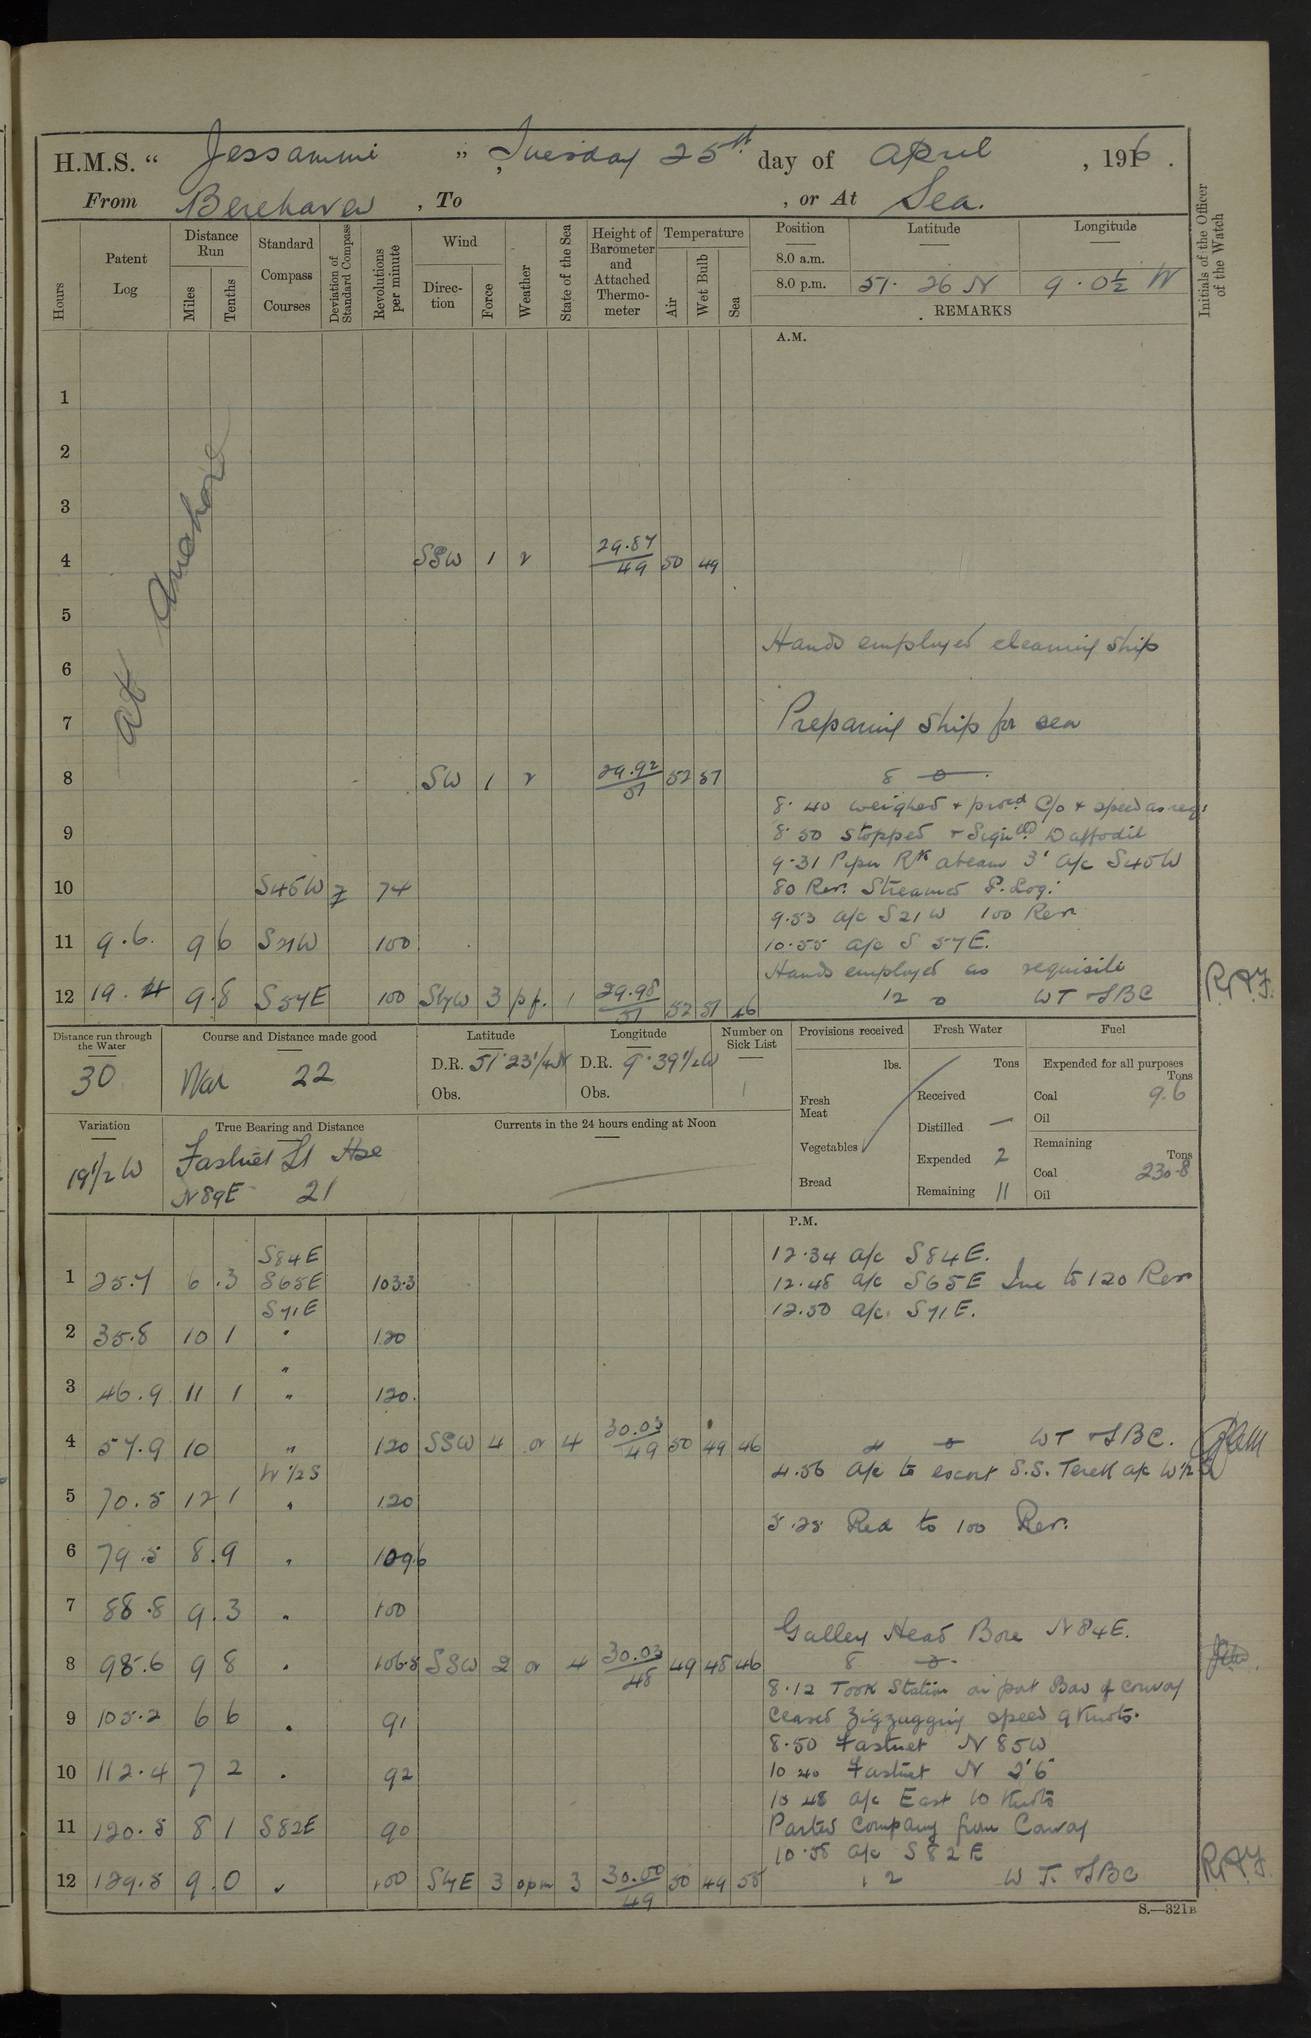 H.M.S. “ Jessamine ” , Tuesday 25th day of April , 1916 .
From Berehaven , To , or At Sea.
Hours
Patent Log
Distance Run
Miles
Tenths
Standard Compass Courses
Deviation of Standard Compass
Revolutions per minute
Wind
Direction
Force
Weather
State of the Sea
Height of Barometer and Attached Thermometer
Temperature
Air
Wet Bulb
Sea
Position Latitude Longitude
8.0 a.m.
8.0 p.m. 51. 26 N 9. 0½ W
REMARKS
Initials of the Officer of the Watch
A.M.
At Anchor
1
2
3
4 SSW 1 r 29.87/49 50 49
5
Hands employed cleaning ship
6
7 Preparing ship for sea
8 SW 1 r 29.92/51 52 51 8 o
8.40 weighed + procd C/o + speed as req:
9 8.50 stopped + Signlld Daffodil
9.31 Rk abeam 3' a/c S45W
10 S45W 74 80 Rev. Streamed P. Log.
9.53 a/c S21W 100 Rev
11 9.6. 9 6 S21W 100 10.55 a/c S 57E.
Hands employed as requisite
12 19.4 9.8 S57E 100 SbyW 3 1 29.98/51 52 51 46 12 o WT & BC
Distance run through the Water
30
Course and Distance made good
22
Latitude
D.R. 51°23¼N
Obs.
Longitude
D.R. 9°39½W
Obs.
Number on Sick List
1
Provisions received
lbs.
Fresh Meat
Vegetables
Bread
Fresh Water
Tons
Received
Distilled —
Expended 2
Remaining 11
Fuel
Expended for all purposes
Tons
Coal 9.6
Oil
Remaining
Tons
Coal 230.8
Oil
Variation
19½W
True Bearing and Distance
Fastnet Lt Hse
N89E 21
Currents in the 24 hours ending at Noon
P.M.
S84E 12.34 a/c S84E.
1 25.7 6.3 S65E 103.3 12.48 a/c S65E Inc to 120 Rev
S71E 12.50 a/c S71E.
2 35.8 10 1 " 120
3 46.9 11 1 " 120.
4 57.9 10 " 120 SSW 4 or 4 30.03/49 50 49 46 4 o WT & BC.
W½S 4.56 a/c to escort S.S. Terek a/c W½S
5 70.5 12 1 " 120
5.28 Red to 100 Rev.
6 79.5 8.9 " 109.6
7 88.8 9.3 " 100
Galley Head Bore N84E.
8 98.6 9 8 " 106.8 SSW 2 or 4 30.03/48 49 48 46 8 o
8.12 Took Station on port Bow of convoy
9 105.2 6 6 " 91 Ceased Zigzagging speed 9 Knots.
8.50 Fastnet N 85W
10 112.4 7 2 " 92 10 40 Fastnet N 2'6
10 48 a/c East 10 Knots
11 120.5 8 1 S82E 90 Parted Company from Convoy
10.58 a/c S82E
12 129.5 9.0 " 100 SbyE 3 3 30.00/49 50 49 12 W T. & BC
S.—321B